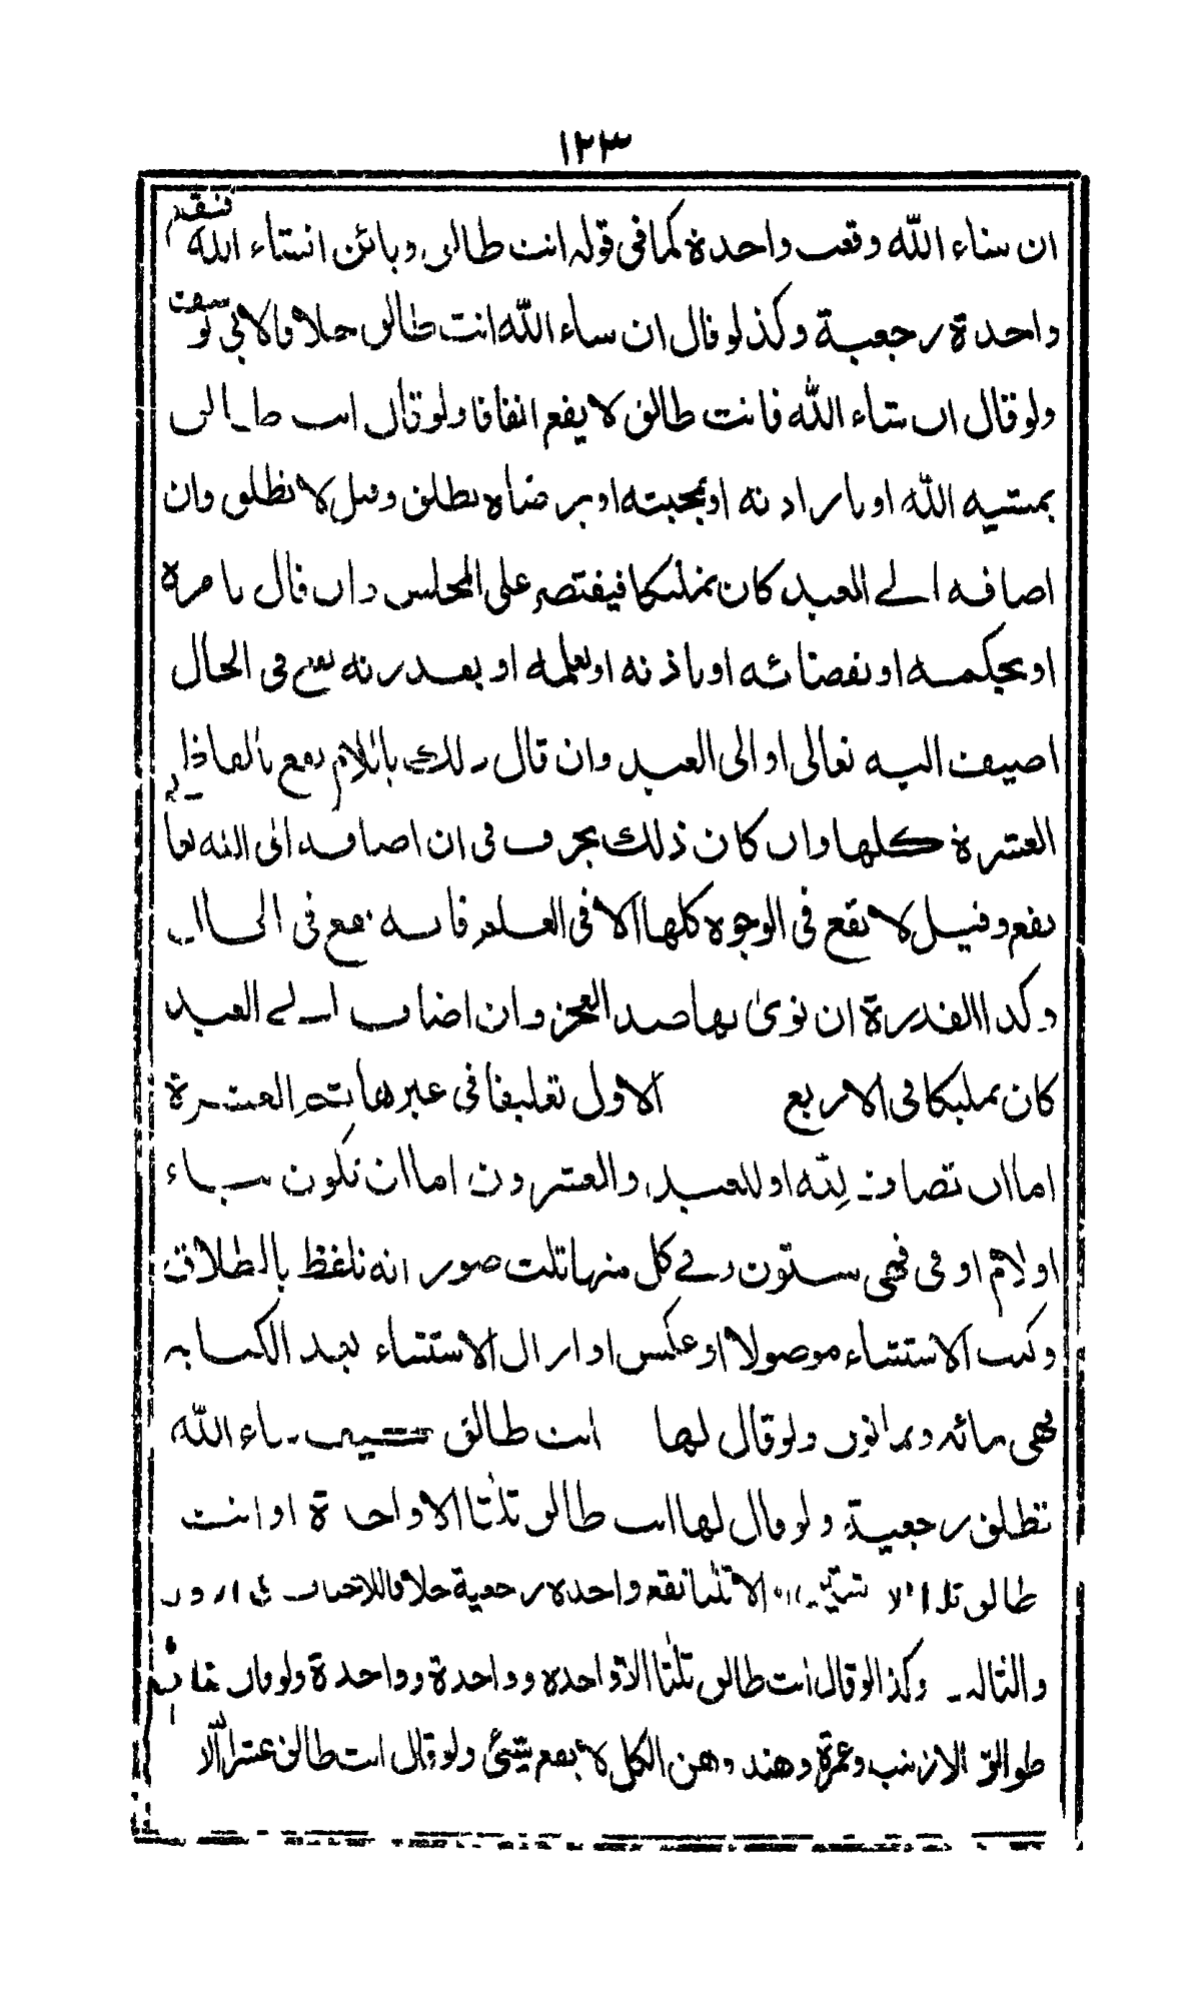 ١٢٣
ان شاء الله وقعت واحدة كما فى قوله انت طالق وبائن انشاء الله تقع
واحدة رجعية وكذ لو قال ان شاء الله انت طالق خلافا لابي يوسف
ولو قال ان شاء الله فانت طالق لا يقع اتفاقا ولو قال انت طالق
بمشيه الله او بارادته او بمحبته او برضاه تطلق وقيل لا تطلق وان
اضافه الے العبد كان تمليكا فيقتصر على المجلس وان قال بامره
او بحكمه او بقضائه او باذنه او بعلمه او بقدرته يقع فى الحال
اضيف اليه تعالى او الى العبد وان قال ذلك باللام يقع
العشرة كلها وان كان ذلك بحرف فى ان اضافه الى الله تعا
يقع وقيل لا يقع فى الوجوه كلها الا فى العلم فانه يقع فى الحال
وكذا القدرة ان نوى بها ضد العجز وان اضاف الے العبد
كان تمليكا فى الاربع الاول تعليقا فى غيرها العشرة
اما ان تضاف لله او للعبد والعشرون اما ان تكون بباء
او لام او فى فهى ستون وفے كل منها ثلث صور انه تلفظ بالطلاق
وكتب الاستثناء موصولا او عكس او ازال الاستثناء بعد الكتابه
فهى مائه وثمانون ولو قال لها انت طالق الله
تطلق رجعية ولو قال لها انت طالق ثلثا الا واحدة او انت
طالق الا ثلثا تقع واحده رجعية خلافا
وكذا لو قال انت طالق ثلثا الا واحده وواحدة وواحدة ولو قال
طوالق الا زينب وعمرة وهند وهن الكل لا يقع شئ ولو قال انت طالق عشرا الا